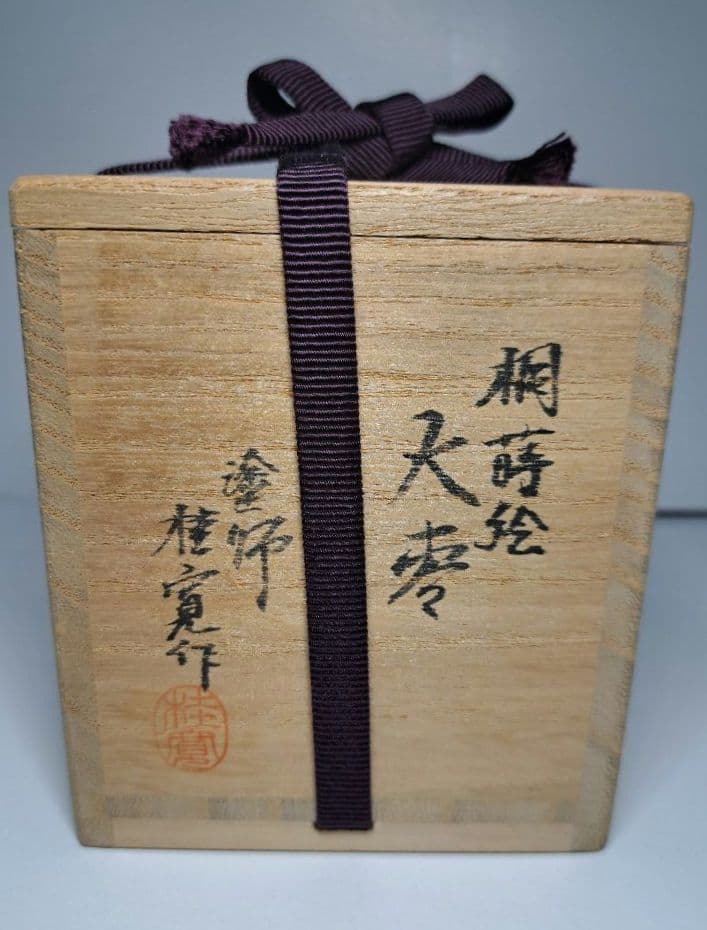 桐蒔絵
大棗
塗師
桂寛作
桂寛